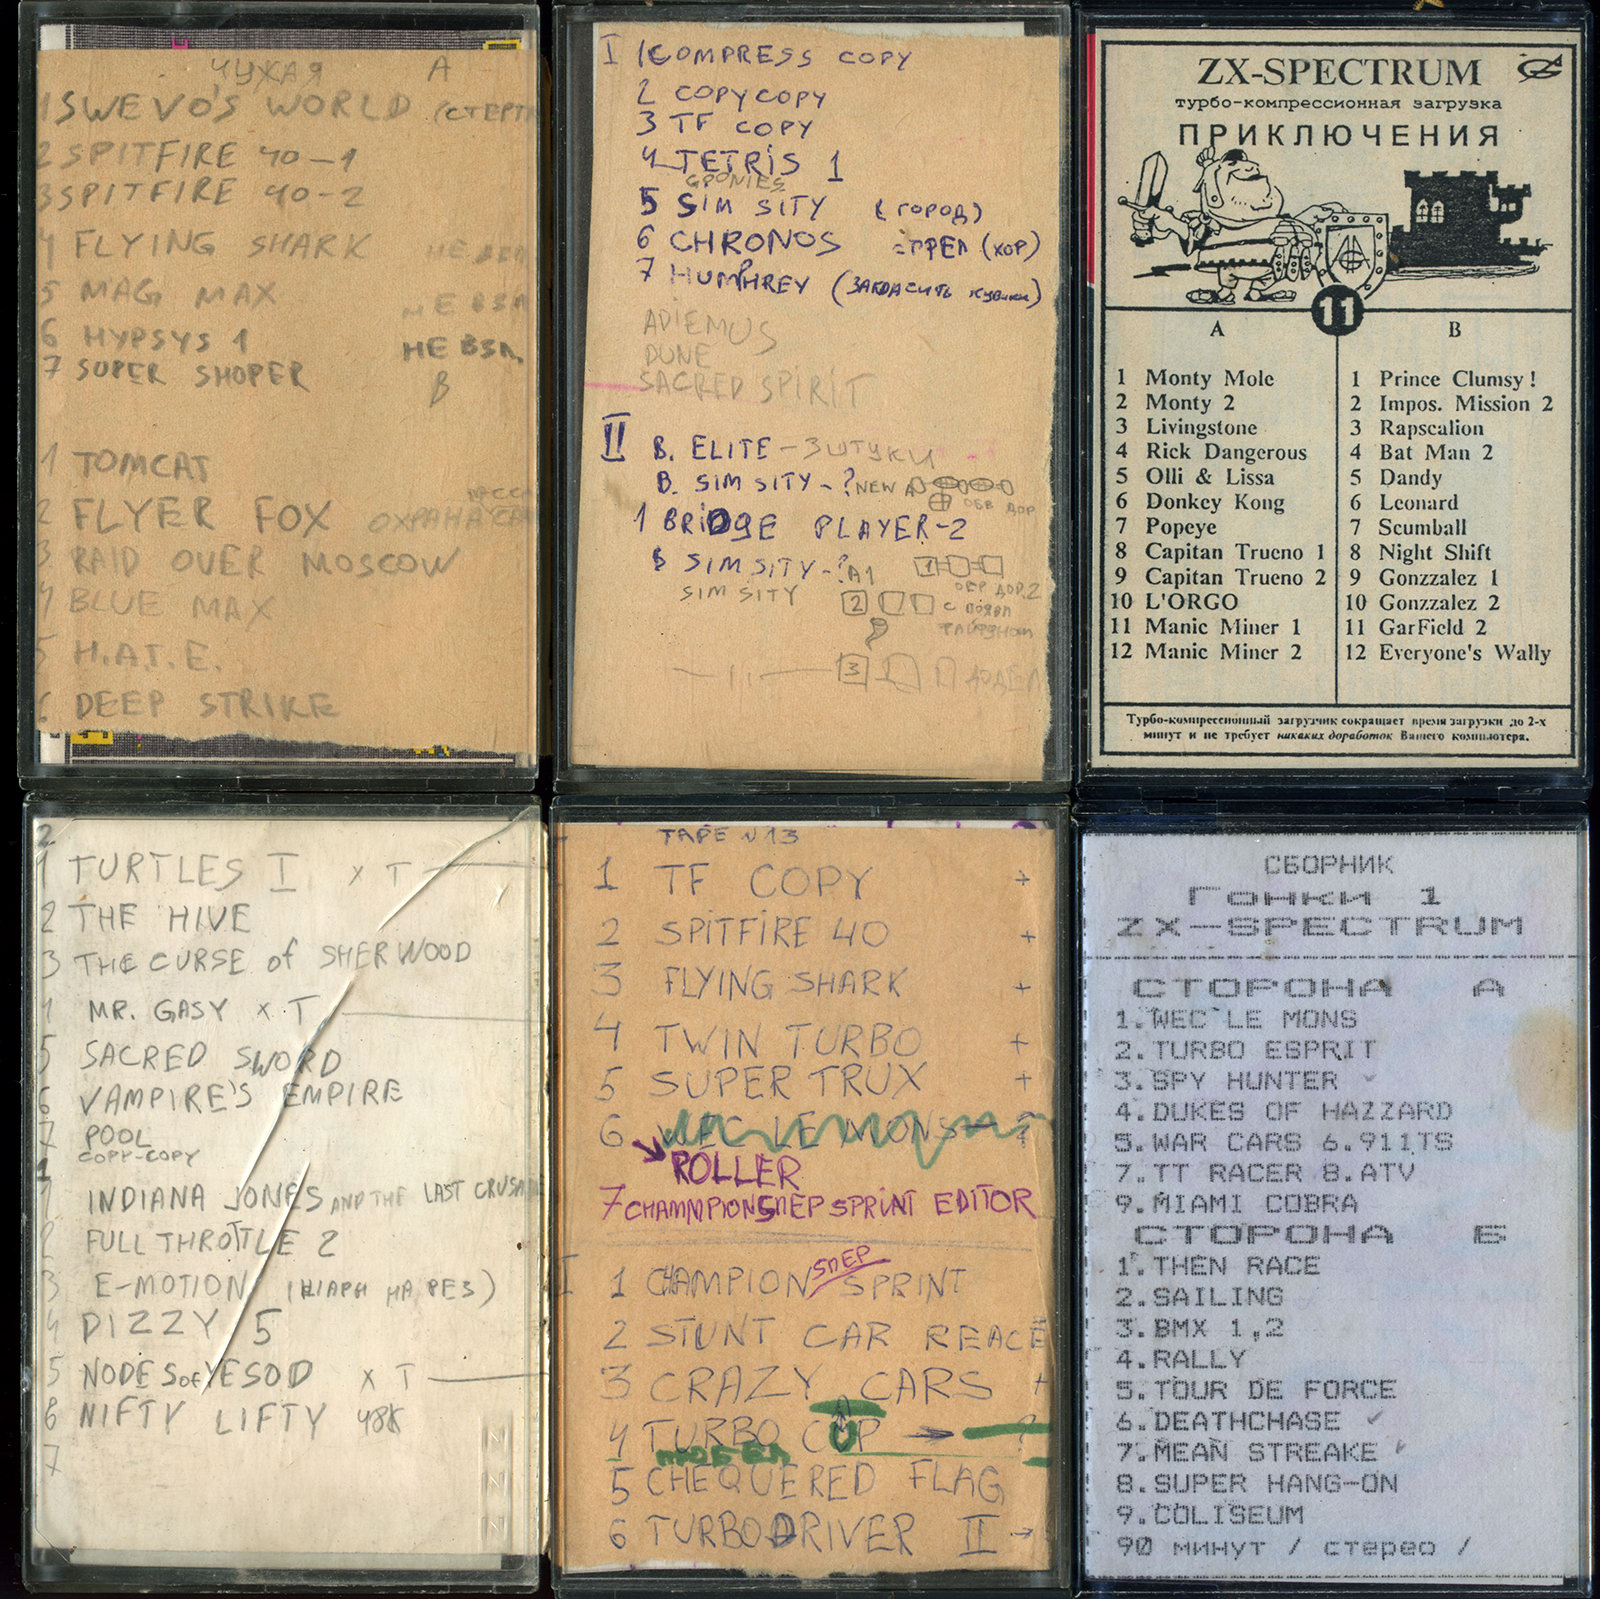 ЧУЖАЯ А
1 SWEVO'S WORLD (СТЕРТ
2 SPITFIRE 40-1
3 SPITFIRE 40-2
4 FLYING SHARK НЕ ВЗЛ
5 MAG MAX НЕ ВЗЛ
6 HYPSYS 1 НЕ ВЗЛ.
7 SUPER SHOPER
В
1 TOMCAT
2 FLYER FOX ОХРАНА
3 RAID OVER MOSCOW
4 BLUE MAX
5 H.A.T.E.
6 DEEP STRIKE
I 1 COMPRESS COPY
2 COPYCOPY
3 TF COPY
4 TETRIS 1
GPONIES
5 SIM SITY (ГОРОД)
6 CHRONOS (ХОР)
7 HUMPHREY (ЗАКРАСИТЬ
ADIEMUS
DUNE
SACRED SPIRIT
II B. ELITE - 3 ШТУКИ
B. SIM SITY - ? NEW A
1 BRIDGE PLAYER-2
B SIM SITY - ? A1 1
SIM SITY 2
3
ZX-SPECTRUM
турбо-компрессионная загрузка
ПРИКЛЮЧЕНИЯ
11
A B
1 Monty Mole 1 Prince Clumsy !
2 Monty 2 2 Impos. Mission 2
3 Livingstone 3 Rapscalion
4 Rick Dangerous 4 Bat Man 2
5 Olli & Lissa 5 Dandy
6 Donkey Kong 6 Leonard
7 Popeye 7 Scumball
8 Capitan Trueno 1 8 Night Shift
9 Capitan Trueno 2 9 Gonzzalez 1
10 L'ORGO 10 Gonzzalez 2
11 Manic Miner 1 11 GarField 2
12 Manic Miner 2 12 Everyone's Wally
Турбо-компрессионный загрузчик сокращает время загрузки до 2-х
минут и не требует никаких доработок Вашего компьютера.
2
1 TURTLES I x T
2 THE HIVE
3 THE CURSE of SHERWOOD
4 MR. GASY x T
5 SACRED SWORD
6 VAMPIRE'S EMPIRE
7 POOL
COPY-COPY
1
1 INDIANA JONES AND THE LAST CRUSA
2 FULL THROTTLE 2
3 E-MOTION (ШАРЫ НА РЕЗ)
4 DIZZY 5
5 NODES of YESOD x T
6 NIFTY LIFTY 48K
7
TAPE N 13
1 TF COPY +
2 SPITFIRE 40 +
3 FLYING SHARK +
4 TWIN TURBO +
5 SUPER TRUX +
6 WEC LE MONS - ?
ROLLER
7 CHAMMPIONSПЕР SPRINT EDITOR
I 1 CHAMPION SПЕР SPRINT
2 STUNT CAR REACE
3 CRAZY CARS +
4 TURBO CUP ?
5 CHEQUERED FLAG
6 TURBO DRIVER II
СБОРНИК
ГОНКИ 1
ZX-SPECTRUM
СТОРОНА А
1.WEC LE MONS
2.TURBO ESPRIT
3.SPY HUNTER
4.DUKES OF HAZZARD
5.WAR CARS 6.911TS
7.TT RACER 8.ATV
9.MIAMI COBRA
СТОРОНА Б
1.THEN RACE
2.SAILING
3.BMX 1,2
4.RALLY
5.TOUR DE FORCE
6.DEATHCHASE
7.MEAN STREAKE
8.SUPER HANG-ON
9.COLISEUM
90 минут / стерео /